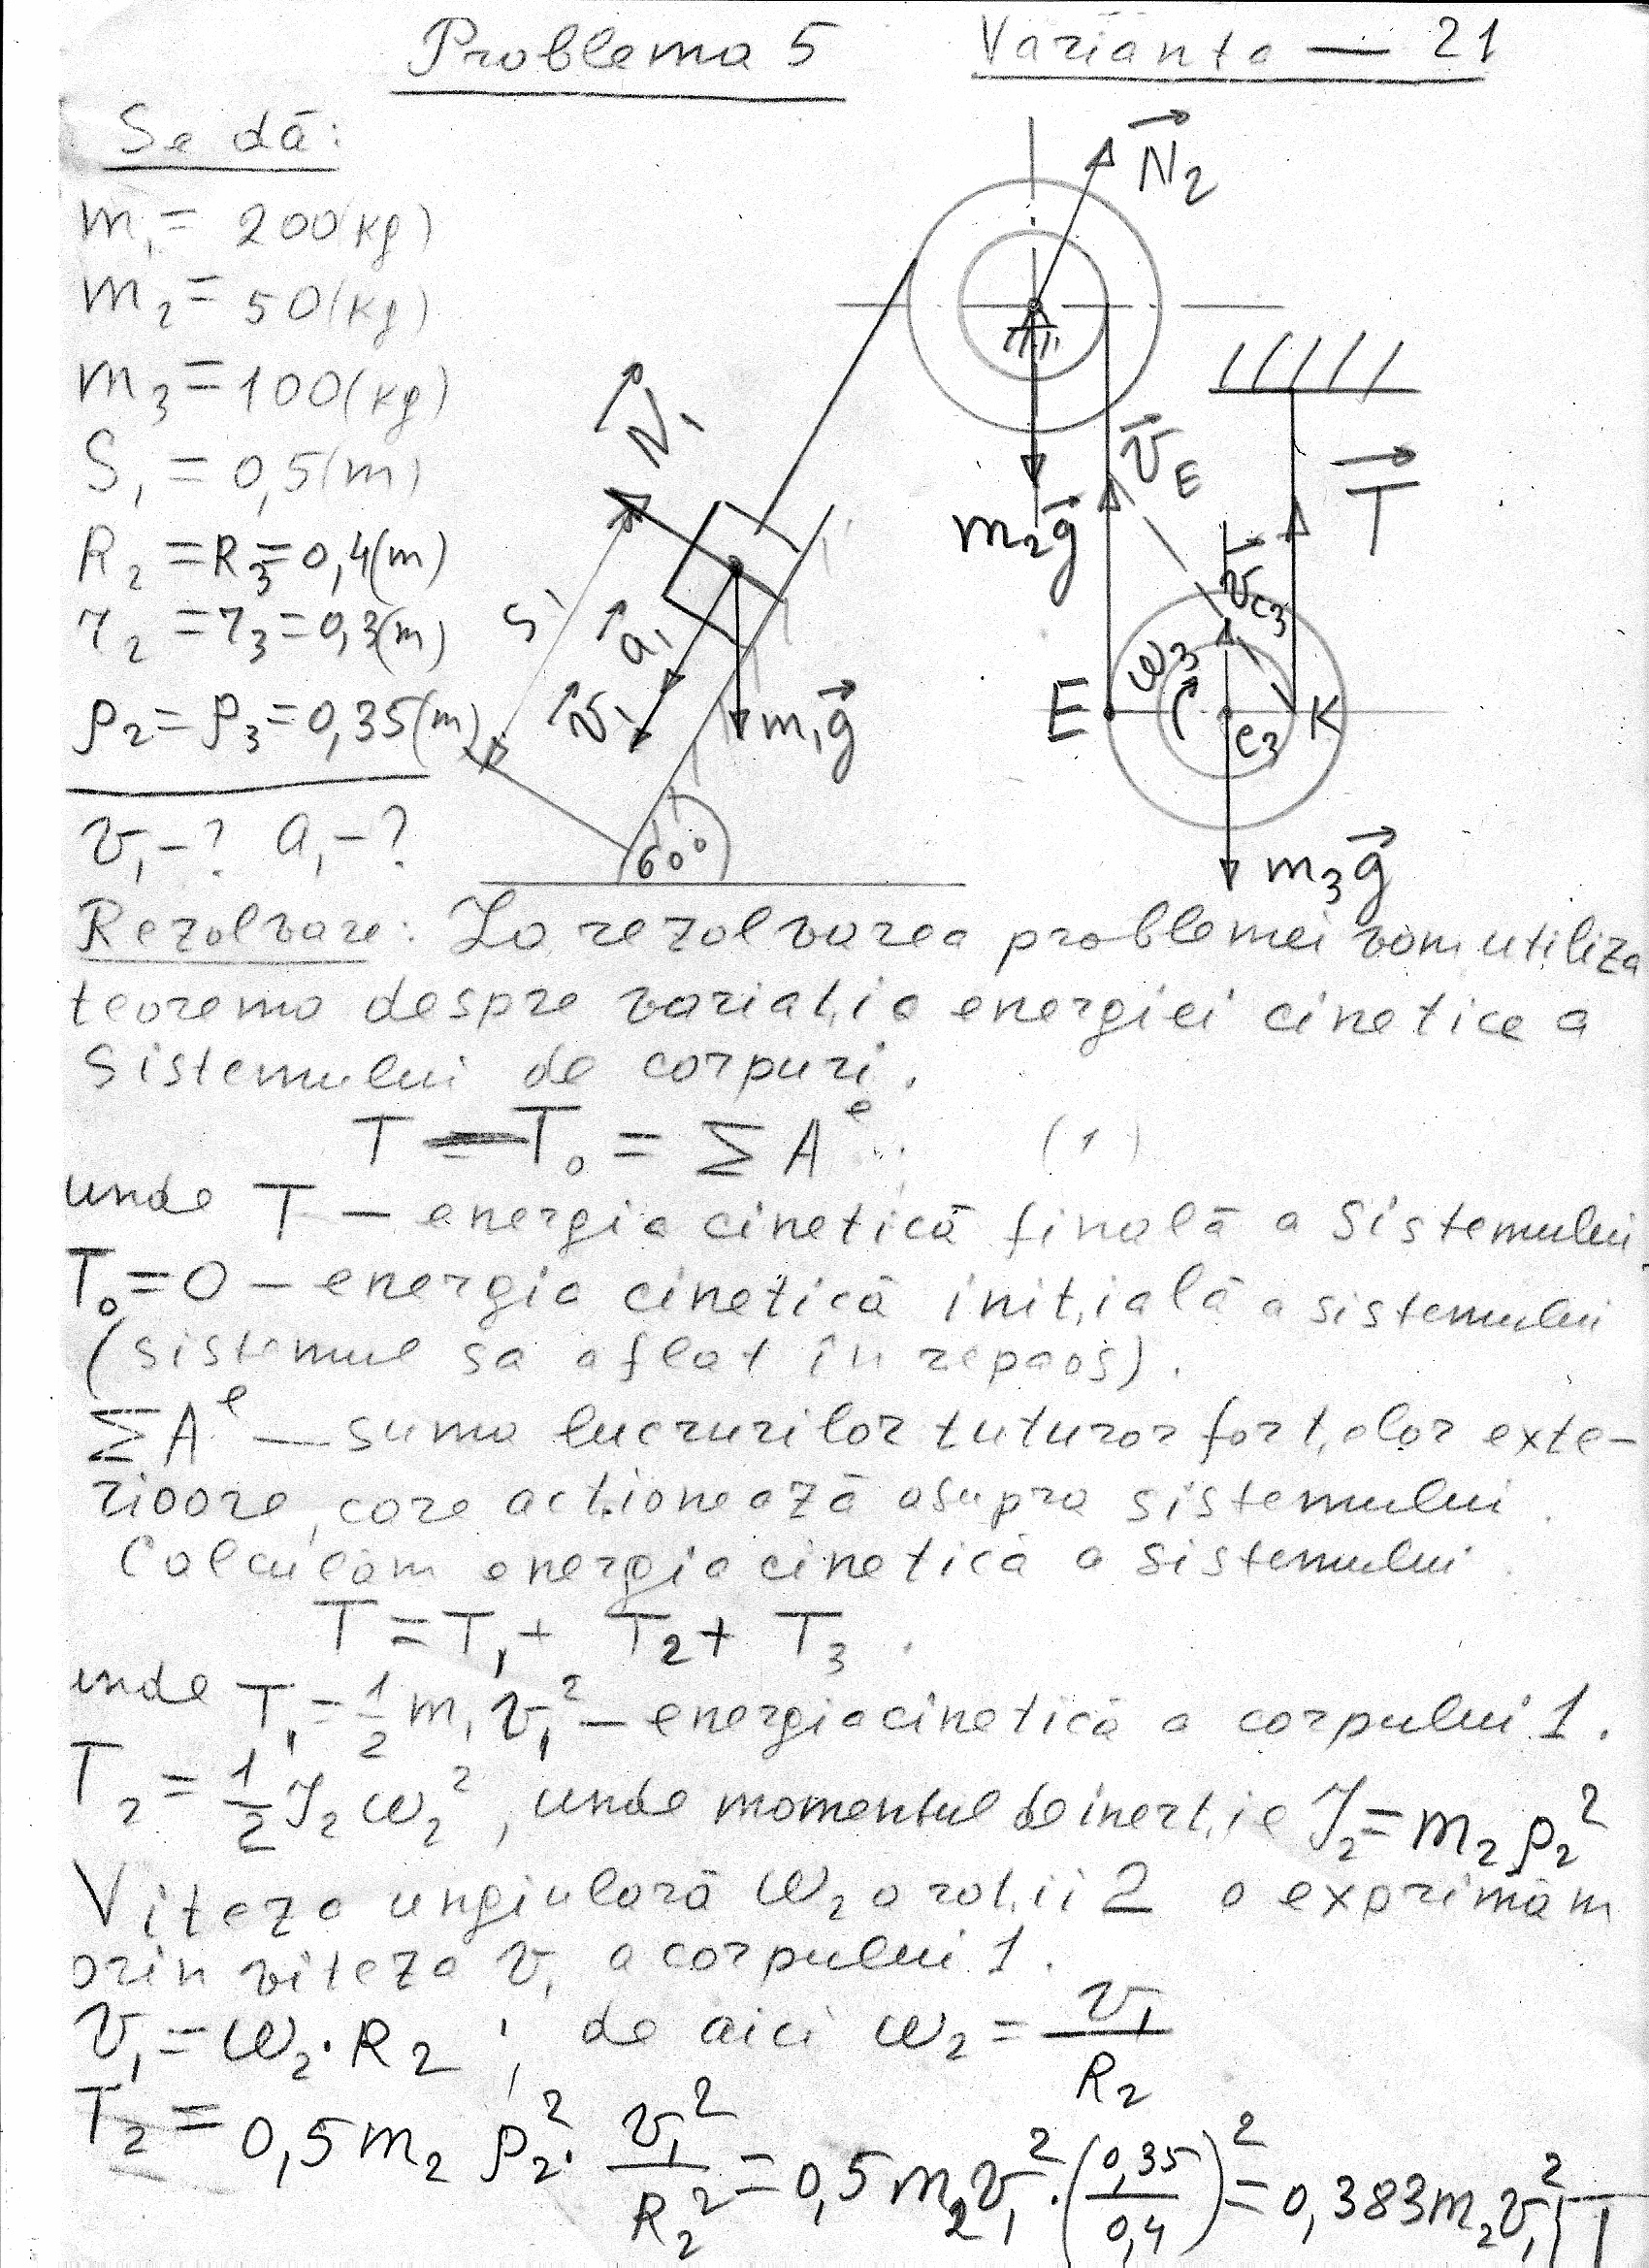 Problema 5 Varianta — 21
Se dă:
m₁ = 200(kg)
m₂ = 50(kg)
m₃ = 100(kg)
S₁ = 0,5(m)
R₂ = R₃ = 0,4(m)
r₂ = r₃ = 0,3(m)
ρ₂ = ρ₃ = 0,35(m)
v₁ - ? a₁ - ?
N₂
N₁
v_E
T
m₂g
S₁
a₁
v₁
m₁g
v_C3
ω₃
E
C₃
K
60°
m₃g
Rezolvare: La rezolvarea problemei vom utiliza
teorema despre variat,ia energiei cinetice a
sistemului de corpuri.
T — T₀ = ΣAᵉ (1)
unde T — energia cinetică finală a sistemului
T₀ = 0 — energia cinetică init,ială a sistemului
(sistemul sa aflat în repaos).
ΣAᵉ — suma lucrurilor tuturor fort,elor exte-
rioare, care act,ionează asupra sistemului.
Calculăm energia cinetică a sistemului
T = T₁ + T₂ + T₃.
unde T₁ = 1/2 m₁ v₁² — energia cinetică a corpului 1.
T₂ = 1/2 J₂ ω₂², unde momentul de inert,ie J₂ = m₂ρ₂²
Viteza ungiulară ω₂ a rot,ii 2 o exprimăm
prin viteza v₁ a corpului 1.
v₁ = ω₂·R₂ ; de aici ω₂ = v₁/R₂
T₂ = 0,5m₂ ρ₂² · v₁²/R₂² = 0,5m₂v₁² · (0,35/0,4)² = 0,383m₂v₁²